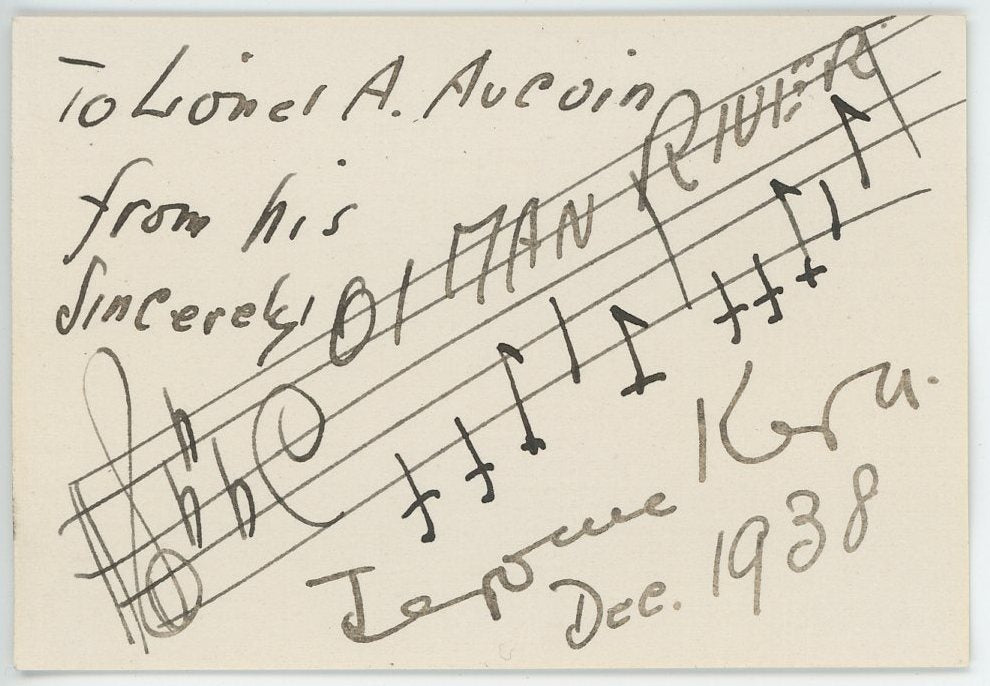 To Lionel A. Aucoin
from his
Sincerely
Ol MAN RIVER
Jerome Kern.
Dec. 1938